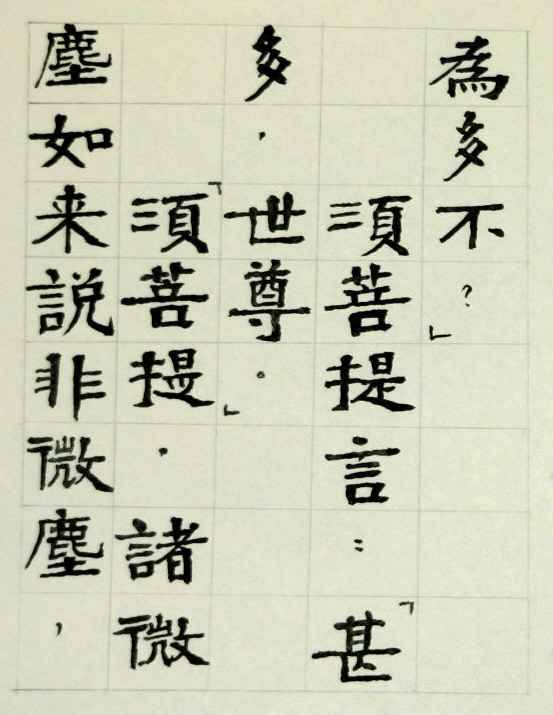 為多不?」
須菩提言:「甚
多,世尊。」
「須菩提,諸微
塵如来説非微塵,